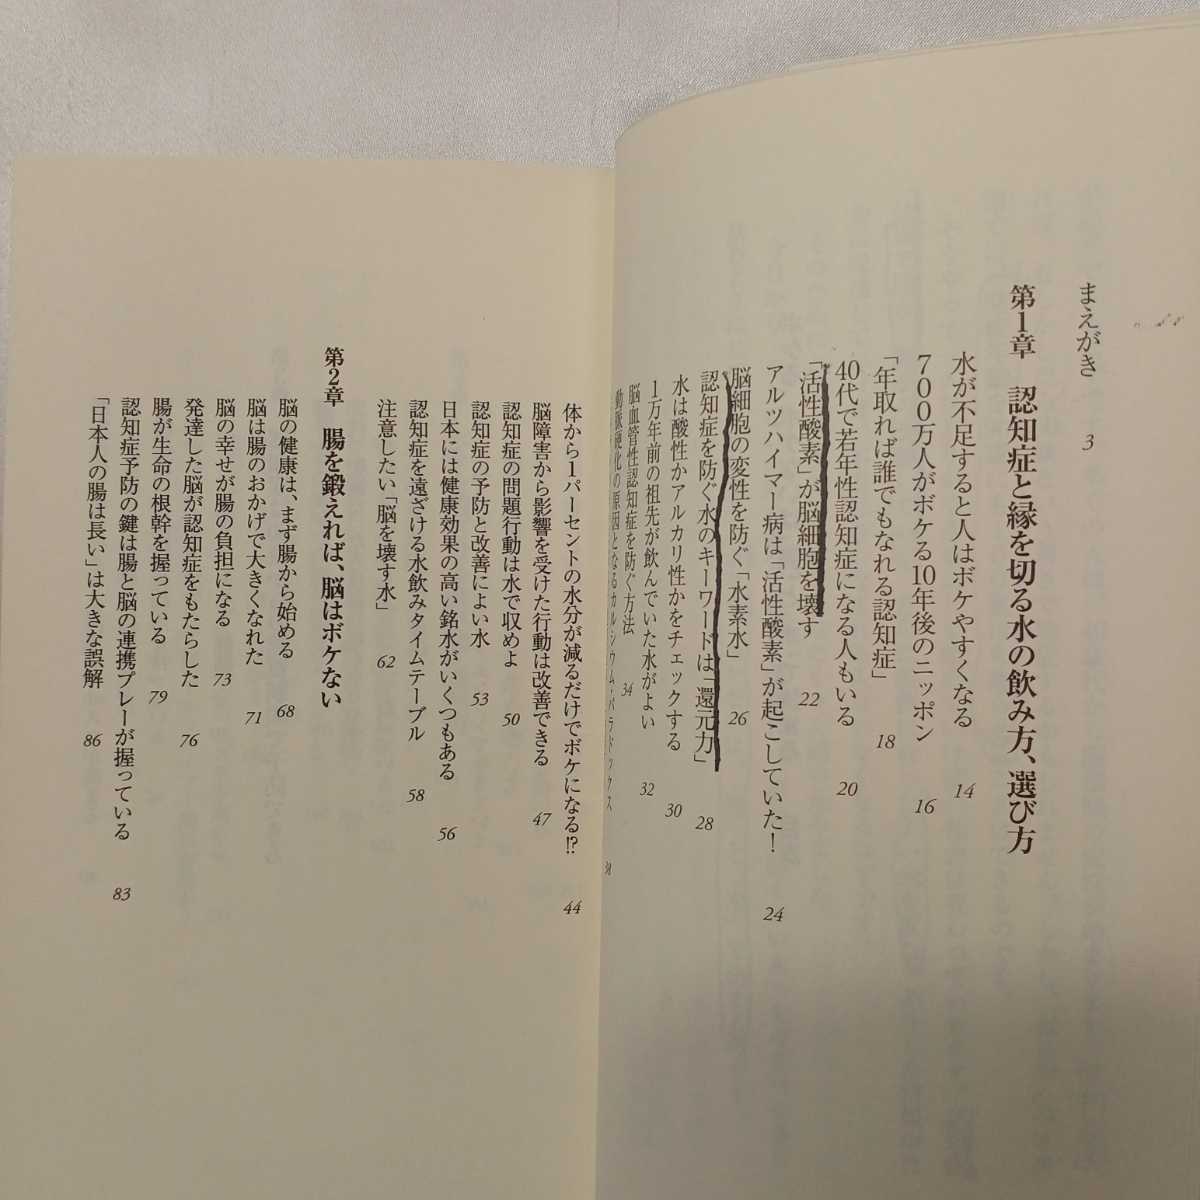 まえがき 3
第1章 認知症と縁を切る水の飲み方、選び方
水が不足すると人はボケやすくなる 14
700万人がボケる10年後のニッポン 16
「年取れば誰でもなれる認知症」 18
40代で若年性認知症になる人もいる 20
「活性酸素」が脳細胞を壊す 22
アルツハイマー病は「活性酸素」が起こしていた! 24
脳細胞の変性を防ぐ「水素水」 26
認知症を防ぐ水のキーワードは「還元力」 28
水は酸性かアルカリ性かをチェックする 30
1万年前の祖先が飲んでいた水がよい 32
脳血管性認知症を防ぐ方法 34
動脈硬化の原因となるカルシウム・パラドックス 38
体から1パーセントの水分が減るだけでボケになる!? 44
脳障害から影響を受けた行動は改善できる 47
認知症の問題行動は水で収めよ 50
認知症の予防と改善によい水 53
日本には健康効果の高い銘水がいくつもある 56
認知症を遠ざける水飲みタイムテーブル 58
注意したい「脳を壊す水」 62
第2章 腸を鍛えれば、脳はボケない
脳の健康は、まず腸から始める 68
脳は腸のおかげで大きくなれた 71
脳の幸せが腸の負担になる 73
発達した脳が認知症をもたらした 76
腸が生命の根幹を握っている 79
認知症予防の鍵は腸と脳の連携プレーが握っている 83
「日本人の腸は長い」は大きな誤解 86